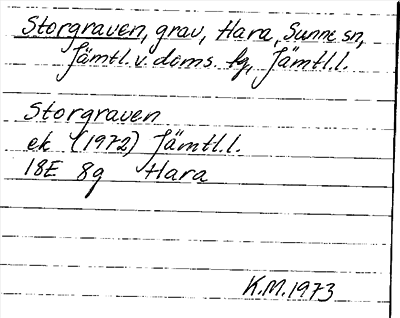 Storgraven, grav, Hara, Sunne sn,
Jämtl. v. doms. fg, Jämtl. l.
Storgraven
ek (1972) Jämtl. l.
18E 8g Hara
K.M. 1973